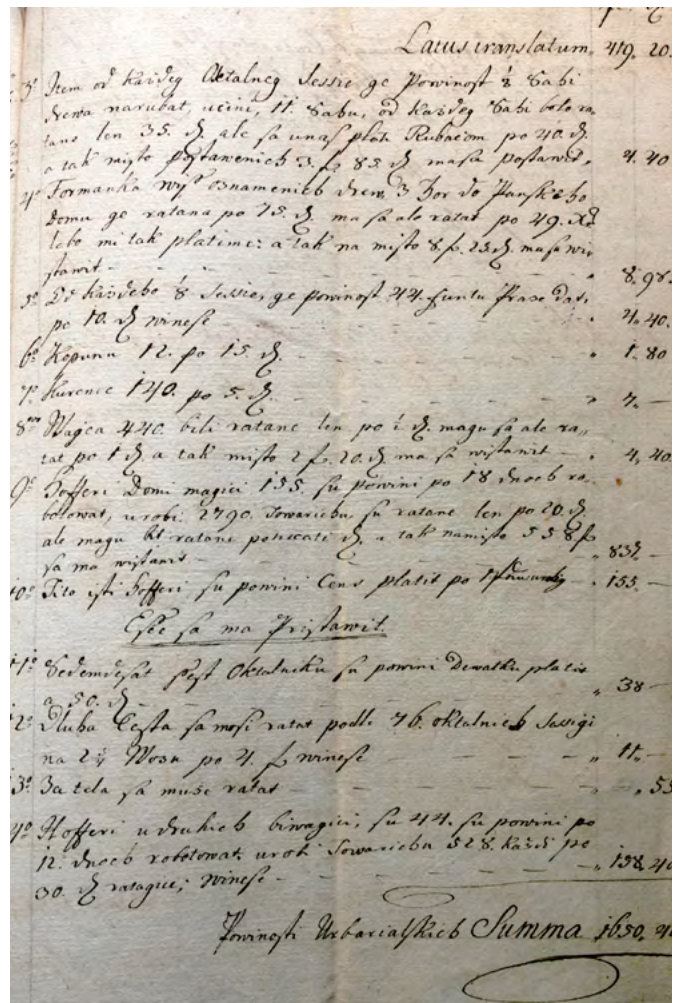 Latus translatum, 419. 20.
3º Item od každeg Oktalneg Sessie ge Powinost ¼ Sahi
drewa narubat, učini, 11. Sahu, od každeg Sahi bolo ra-
tano len 35. ₰. ale sa unas plati Rubačom po 40. ₰.
a tak misto postawenich 3. f. 85. ₰ masa postawit „ 4. 40
4º Formanka wyš oznamenich drew 3 Hor do Panskeho
Domu ge ratana po 75. ₰. ma sa ale ratat po
lebo mi tak platime: a tak na misto 8. f. 25 ₰. masa wi-
stawit „ 8. 98.
5º Od každeho ⅛ Sessie, ge powinost 44. funtu Praze dat
po 10. ₰ winese „ 4. 40.
6º Kopunu 12. po 15. ₰. „ 1. 80
7º Kurence 140. po 5. ₰. „ 7. —
8º Wagca 440. bili ratane len po ½ ₰. magu sa ale ra-
tat po 1 ₰ a tak misto 2 f. 20. ₰ ma sa wistawit „ 4. 40.
9º Hofferi Domi magici 155. su powini po 18 dnoch ro-
botowat, urobi 2790. Towarichu, su ratane len po 20. ₰.
ale magu bt ratane po ₰. a tak namisto 558 f.
sa ma wistawit „ 837. —
10º Tito isti Hofferi, su powini Cens platit po 1 „ 155. —
Eşče sa ma Pristawit
11º Sedemdesat šest Oktalniku su powini Dewatku platit
a 50. ₰ „ 38 —
12º Dluha Cesta sa mosi ratat podli 76. oktalnich Sassigi
na 2¾ Wozu po 4. f. winese „ 11. —
13º Za tela sa muze ratat „ „ 55
14º Hofferi u druhich biwagici, su 44. su powini po
12. dnoch robotowat, urobi Towarichu 528. každi po
30. ₰ ratagice; winese „ 158. 40
Powinosti Urbarialskich Summa 1650. 2